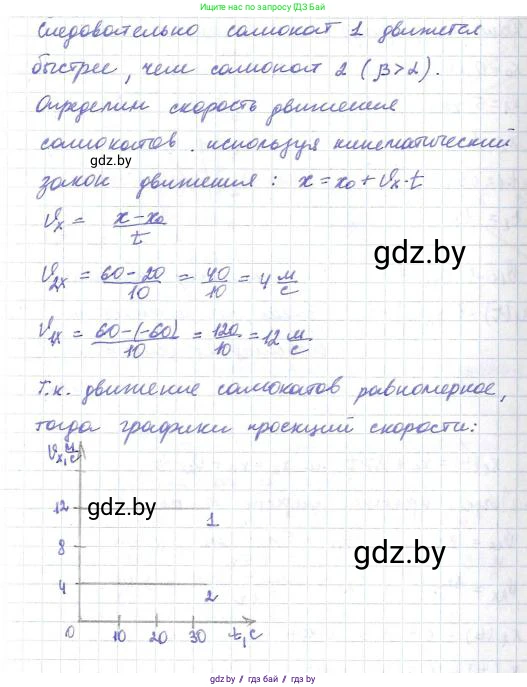 Присоединяйся к поиску решений
Следовательно самокат 1 движется
быстрее, чем самокат 2 (β>α).
Определим скорость движения
самокатов, используя кинематический
gdz.by
закон движения: x = x₀ + υₓ·t
υₓ = (x − x₀)/t
gdz.by
υ₂ₓ = (60−20)/10 = 40/10 = 4 м/с
υ₁ₓ = (60−(−60))/10 = 120/10 = 12 м/с
Т.к. движение самокатов равномерное,
тогда графики проекций скорости:
υₓ, м/с
12 gdz.by 1
8 gdz.by
4 2
0 10 20 30 t, с
gdz.by / гдз бай / gdz.by / гдз бай / gdz.by